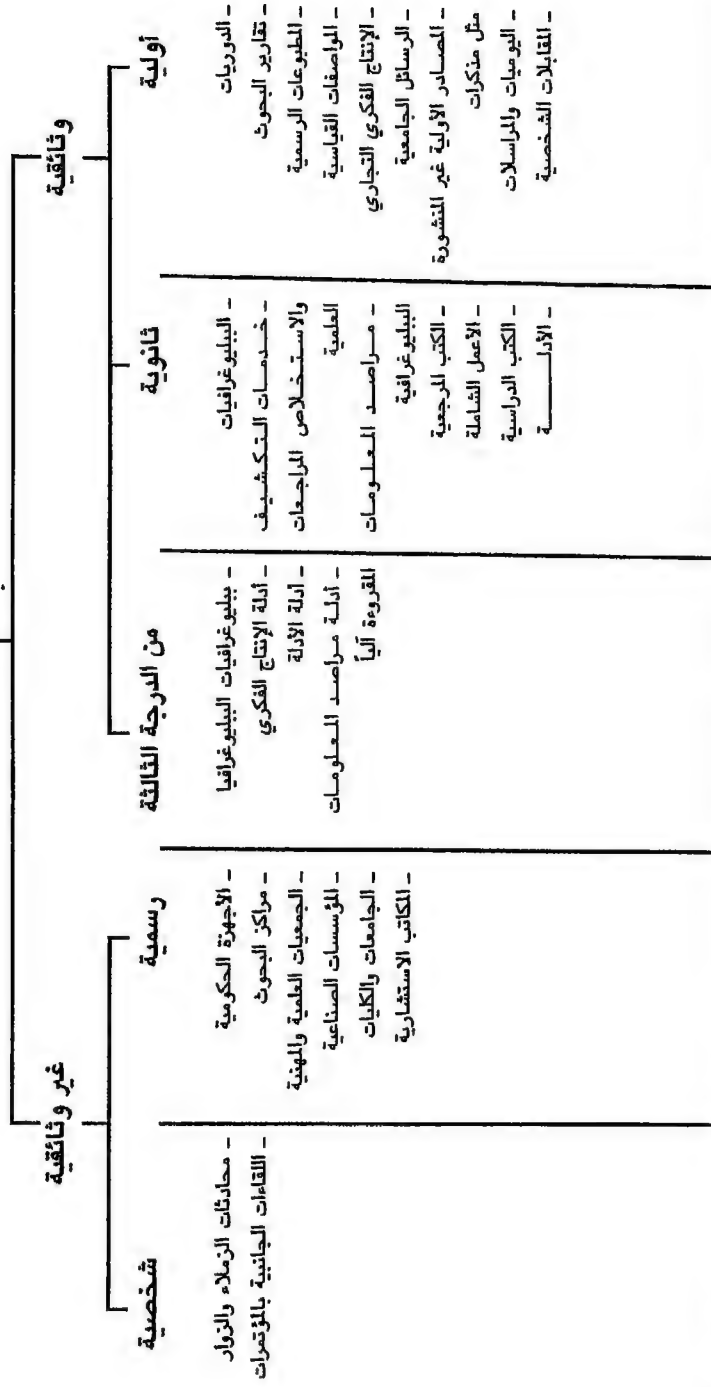 وثائقية
غير وثائقية
أولية
ثانوية
من الدرجة الثالثة
رسمية
شخصية
- الدوريات
- تقارير البحوث
- المطبوعات الرسمية
- المواصفات القياسية
- الإنتاج الفكري التجاري
- الرسائل الجامعية
- المصادر الأولية غير المنشورة
مثل مذكرات
- اليوميات والمراسلات
- المقابلات الشخصية
- الببليوغرافيات
- خدمات التكشيف
والاستخلاص المراجعات
العلمية
- مراصد المعلومات
الببليوغرافية
- الكتب المرجعية
- الأعمل الشاملة
- الكتب الدراسية
- الأدلــــــة
- ببليوغرافيات الببليوغرافيا
- أدلة الإنتاج الفكري
- أدلة الأدلة
- أدلة مراصد المعلومات
المقروءة آلياً
- الأجهزة الحكومية
- مراكز البحوث
- الجمعيات العلمية والمهنية
- المؤسسات الصناعية
- الجامعات والكليات
- المكاتب الاستشارية
- محادثات الزملاء والزوار
- اللقاءات الجانبية بالمؤتمرات